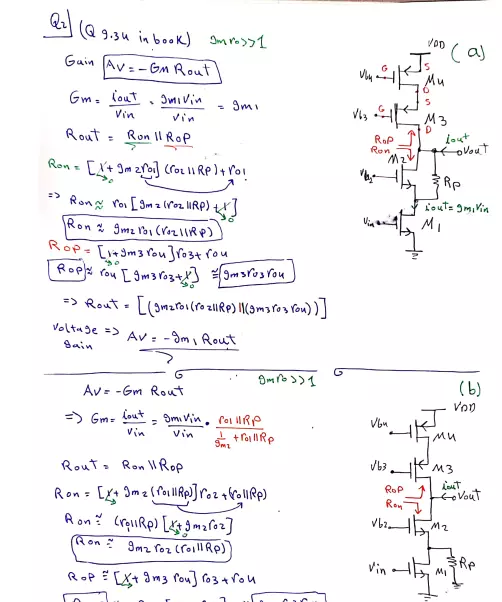 Q2 (Q 9.34 in book) gmro>>1
Gain Av = -Gm Rout
Gm = iout/Vin = gm1Vin/Vin = gm1
Rout = Ron || Rop
Ron = [1 + gm2ro1] (ro2||Rp) + ro1
=> Ron ≈ ro1 [gm2 (ro2||Rp) + 1]
Ron ≈ gm2 ro1 (ro2||Rp)
Rop = [1 + gm3 ro4] ro3 + ro4
Rop ≈ ro4 [gm3 ro3 + 1] ≅ gm3 ro3 ro4
=> Rout = [(gm2 ro1 (ro2||Rp) || (gm3 ro3 ro4))]
Voltage gain => Av = -gm1 Rout
(a)
VDD
Vb4 G S M4
D
S
Vb3 G M3
D
Rop iout
Ron Vout
M2 Rp
Vb2
iout = gm1Vin
Vin M1
gmro>>1
Av = -Gm Rout
=> Gm = iout/Vin = gm1Vin/Vin · ro1||Rp / (1/gm2 + ro1||Rp)
Rout = Ron || Rop
Ron = [1 + gm2 (ro1||Rp)] ro2 + (ro1||Rp)
Ron ≅ (ro1||Rp) [1 + gm2 ro2]
Ron ≅ gm2 ro2 (ro1||Rp)
Rop ≅ [1 + gm3 ro4] ro3 + ro4
(b)
VDD
Vb4 M4
Vb3 M3
Rop iout
Ron Vout
Vb2 M2
Vin M1 Rp